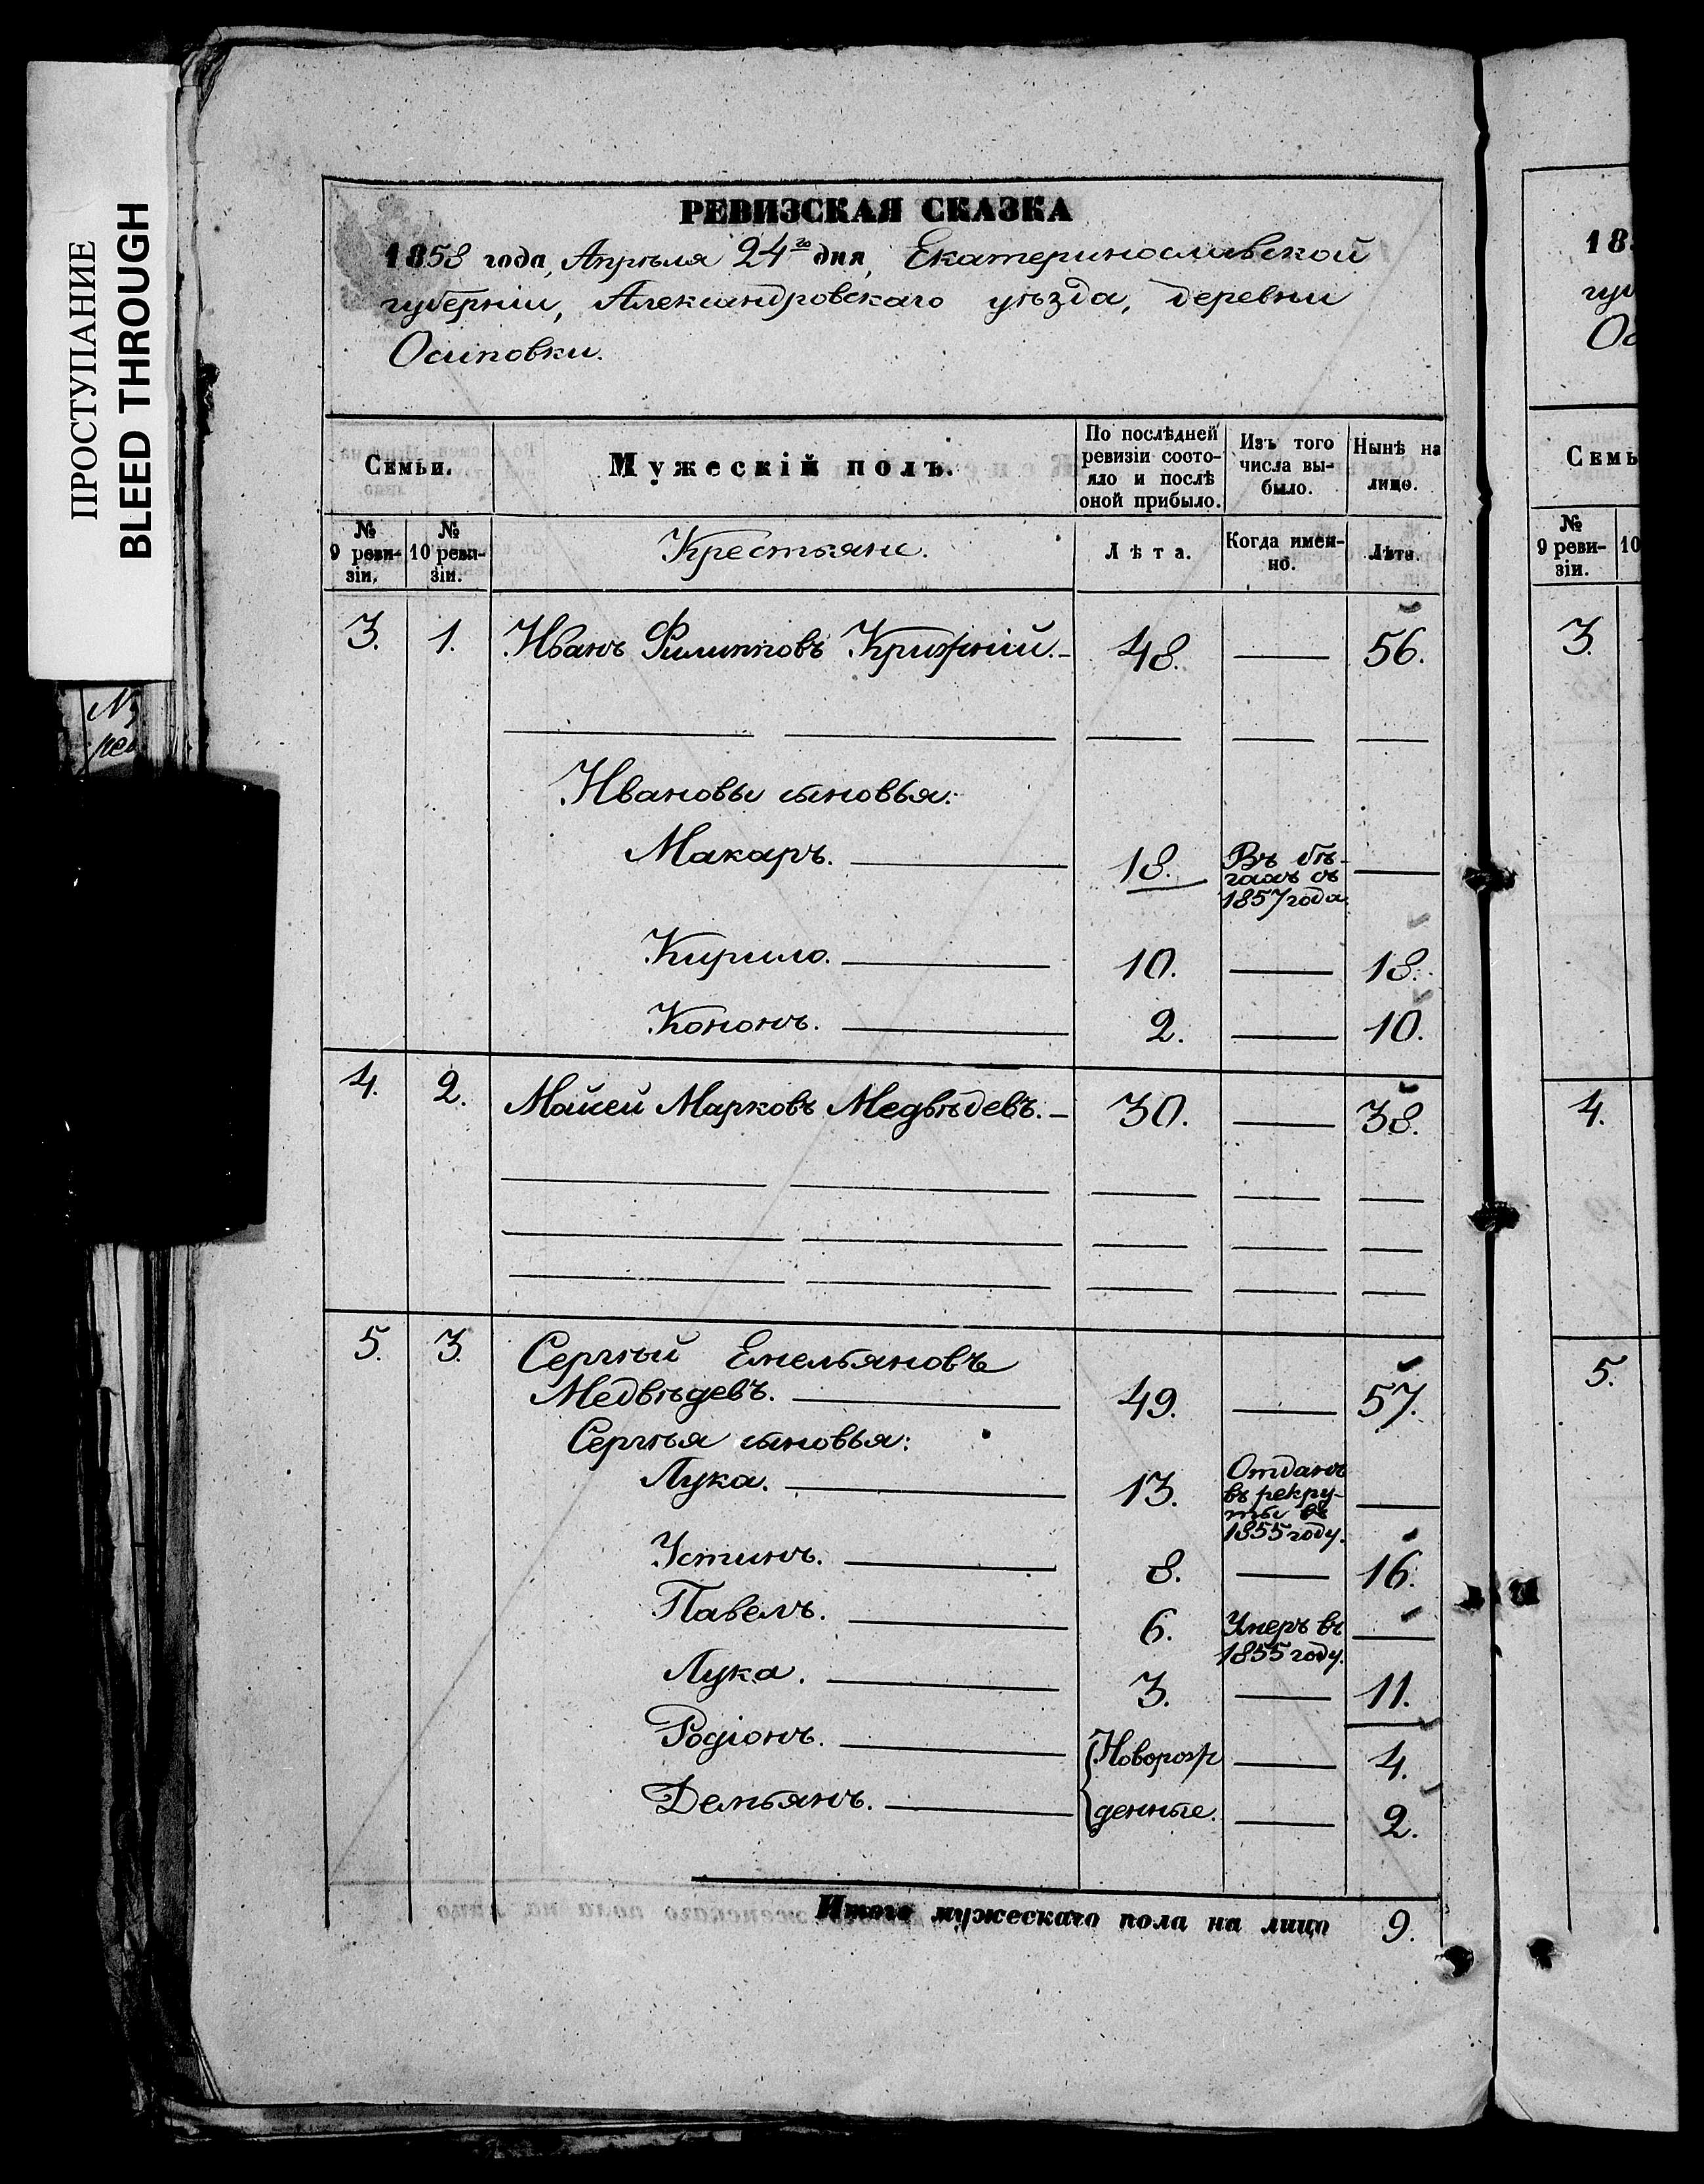 ПРОСТУПАНИЕ
BLEED THROUGH
РЕВИЗСКАЯ СКАЗКА
1858 года, Апрѣля 24го дня, Екатеринославской
губерніи, Александровскаго уѣзда, деревни
Осиповки.
Семьи. Мужескій полъ. По послѣдней ревизіи состояло и послѣ оной прибыло. Изъ того числа выбыло. Нынѣ на лицо.
№ 9 ревизіи. № 10 ревизіи. Крестьяне. Лѣта. Когда именно. Лѣта.
3. 1. Иванъ Филиповъ Крижній. 48. — 56.
Ивановы сыновья:
Макаръ. 18. Въ бѣгахъ съ 1857 года. —
Кирило. 10. — 18.
Кононъ. 2. — 10.
4. 2. Мойсей Марковъ Медвѣдевъ. 30. — 38.
5. 3. Сергѣй Емельяновъ
Медвѣдевъ. 49. — 57.
Сергѣя сыновья:
Лука. 13. Отданъ въ рекруты въ 1855 году. —
Устинъ. 8. — 16.
Павелъ. 6. Умеръ въ 1855 году. —
Лука. 3. — 11.
Родіонъ. {Новорож — 4.
Демьянъ. {денные. — 2.
Итого мужескаго пола на лицо 9.
18
Ос
Семь
№ 9 ревизіи. 10
3.
4.
5.